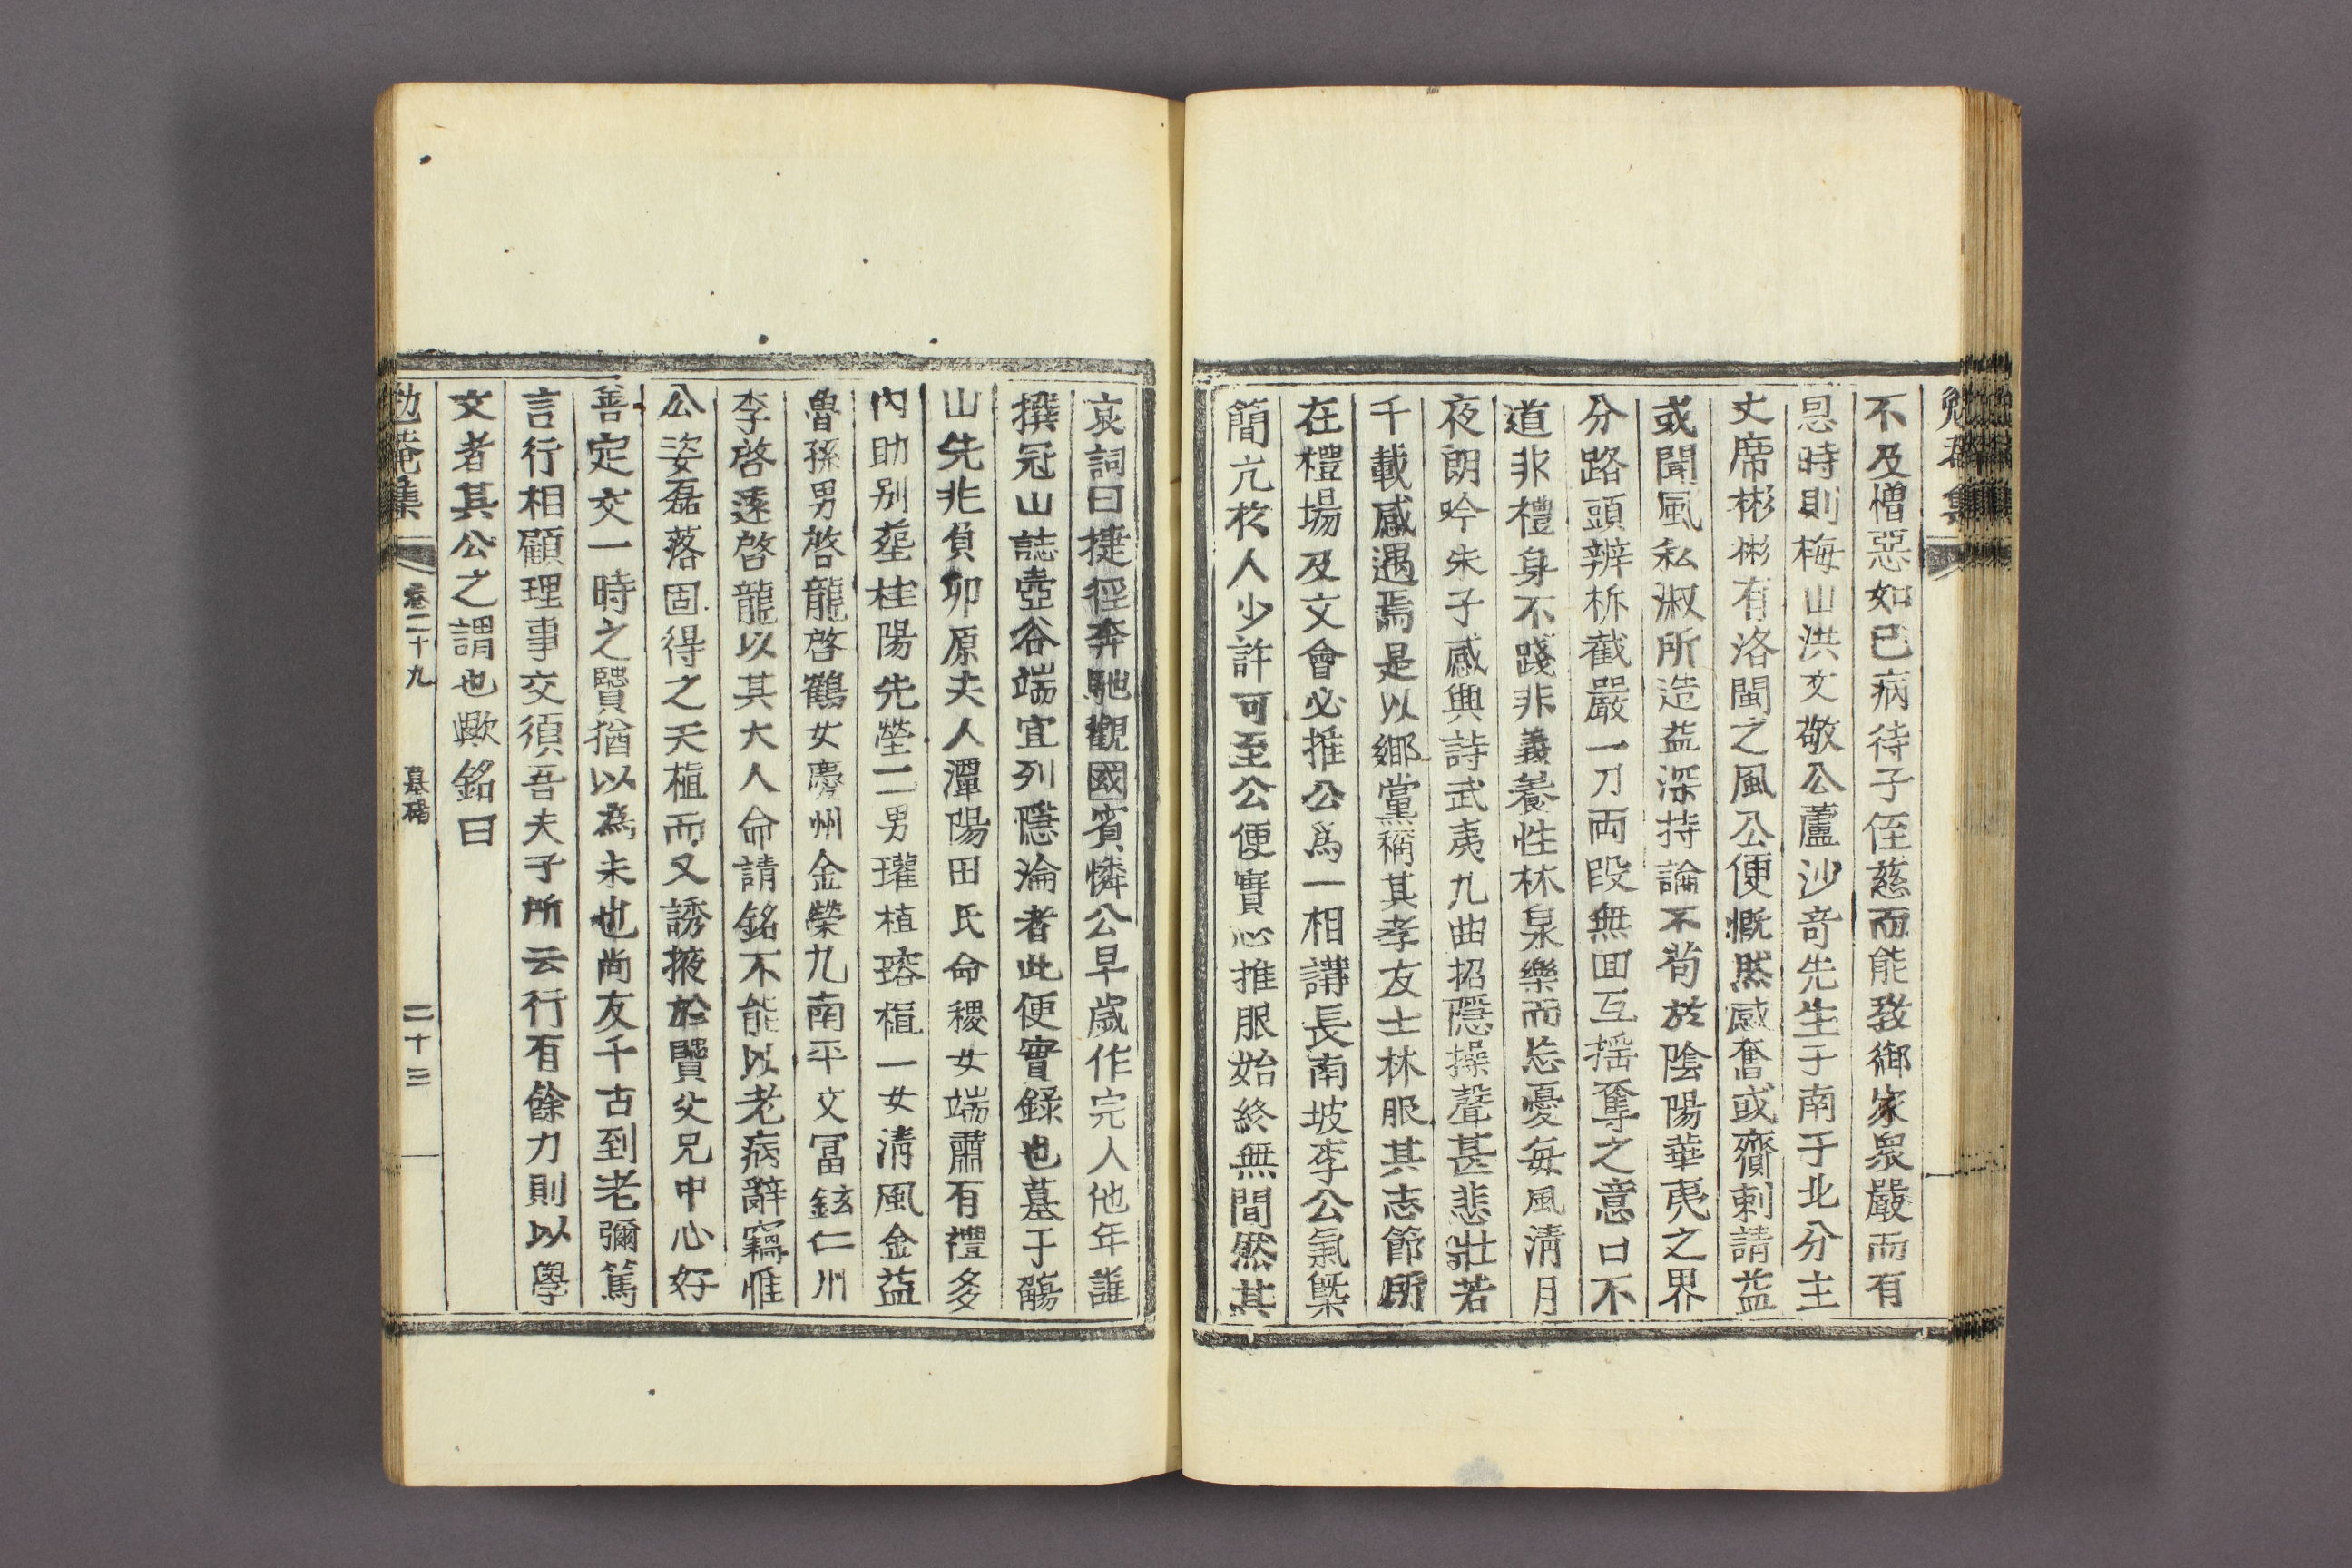 勉菴集
不及憎惡如已病待子侄慈而能敎御家衆嚴而有
恩時則梅山洪文敬公蘆沙奇先生于南于北分主
丈席彬彬有洛閩之風公便慨然感奮或齎刺請益
或聞風私淑所造益深持論不苟於陰陽華夷之界
分路頭辨柝截嚴一刀兩段無回互搖奪之意口不
道非禮身不踐非義養性林泉樂而忘憂每風淸月
夜朗吟朱子感興詩武夷九曲招隱操聲甚悲壯若
千載感遇焉是以鄕黨稱其孝友士林服其志節所
在禮場及文會必推公爲一相講長南坡李公氣槩
簡亢於人少許可至公便實心推服始終無間然其
哀詞曰捷徑奔馳觀國賓憐公早歲作完人他年誰
撰冠山誌壺谷端宜列隱淪者此便實錄也墓于觴
山先兆負卯原夫人潭陽田氏命稷女端肅有禮多
內助別塟桂陽先塋二男瓘植瑢植一女淸風金益
魯孫男啓龍啓鶴女慶州金榮九南平文冨鉉仁川
李啓遠啓龍以其大人命請銘不能以老病辭竊惟
公姿磊落固得之天植而又誘掖於賢父兄中心好
善定交一時之賢猶以爲未也尙友千古到老彌篤
言行相顧理事交須吾夫子所云行有餘力則以學
文者其公之謂也歟銘曰
勉菴集 卷二十九 墓碣 二十三